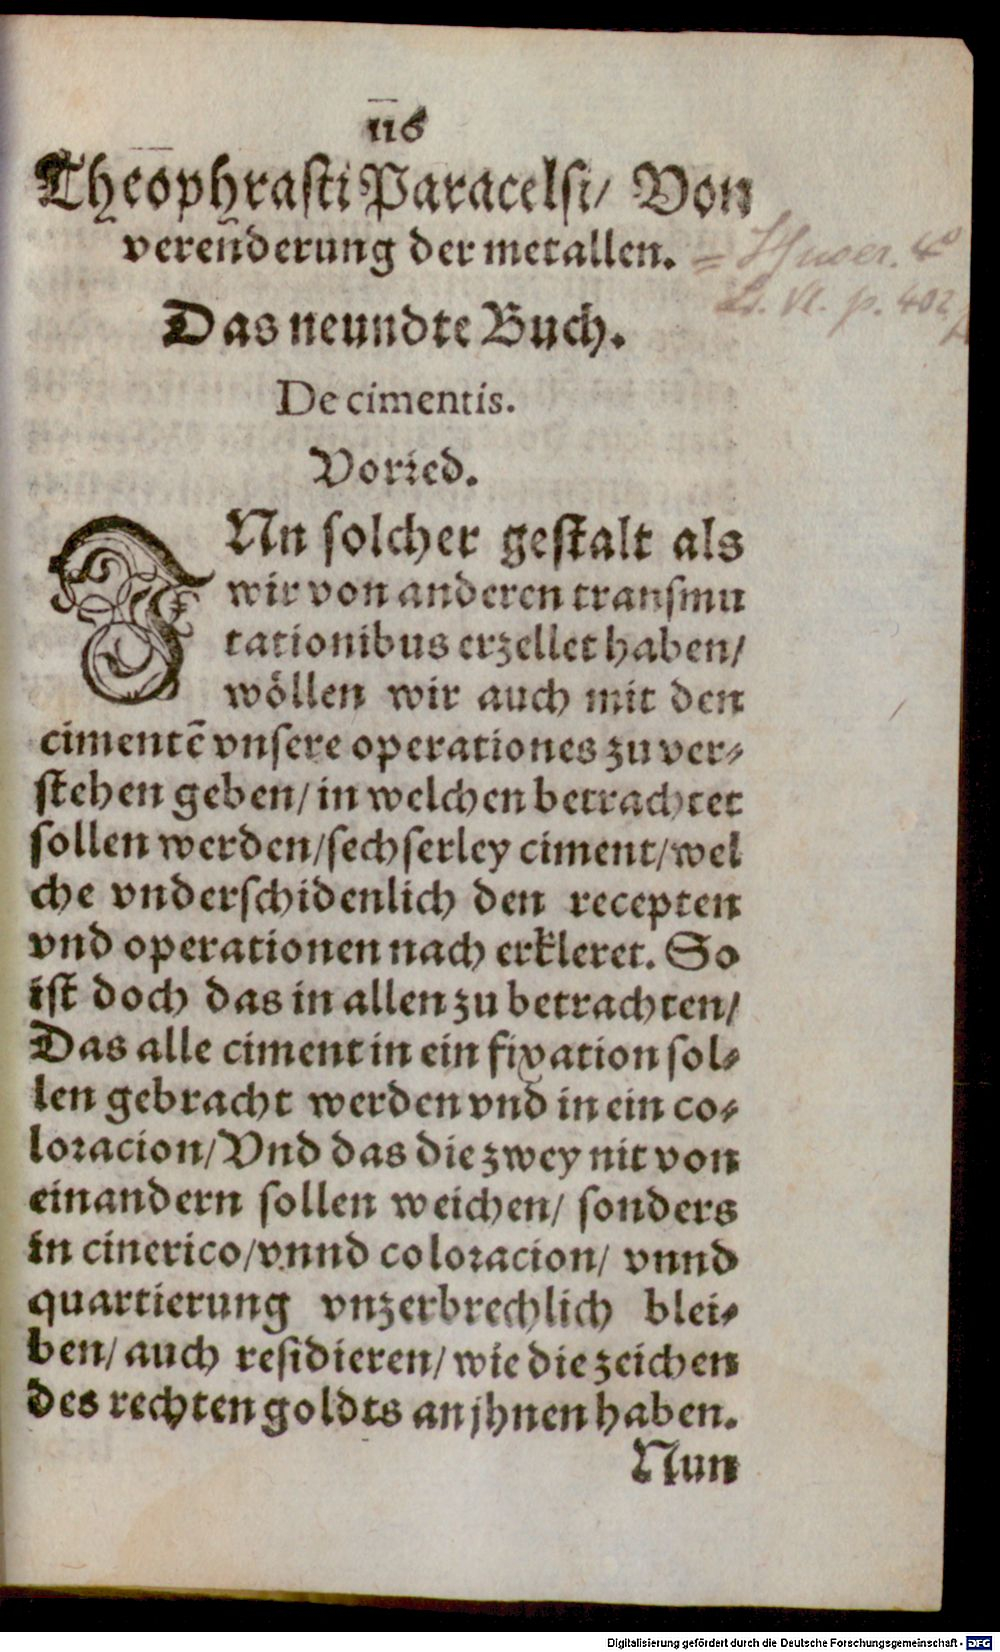 116
Theophrasti Paracelsi/ Von
verenderung der metallen.
= Huser. 4°
Bd. VI. p. 402
Das neundte Buch.
De cimentis.
Vorred.
INn solcher gestalt als
wir von anderen transmu
tationibus erzellet haben/
wöllen wir auch mit den
cimentẽ vnsere operationes zu ver⸗
stehen geben/ in welchen betrachtet
sollen werden/ sechserley ciment/ wel
che vnderschidenlich den recepten
vnd operationen nach erkleret. So
ist doch das in allen zu betrachten/
Das alle ciment in ein fixation sol⸗
len gebracht werden vnd in ein co⸗
loracion/ Vnd das die zwey nit von
einandern sollen weichen/ sonders
in cinericio/ vnnd coloracion/ vnnd
quartierung vnzerbrechlich blei⸗
ben/ auch residieren/ wie die zeichen
des rechten goldts an jhnen haben.
Nun
Digitalisierung gefördert durch die Deutsche Forschungsgemeinschaft - DFG